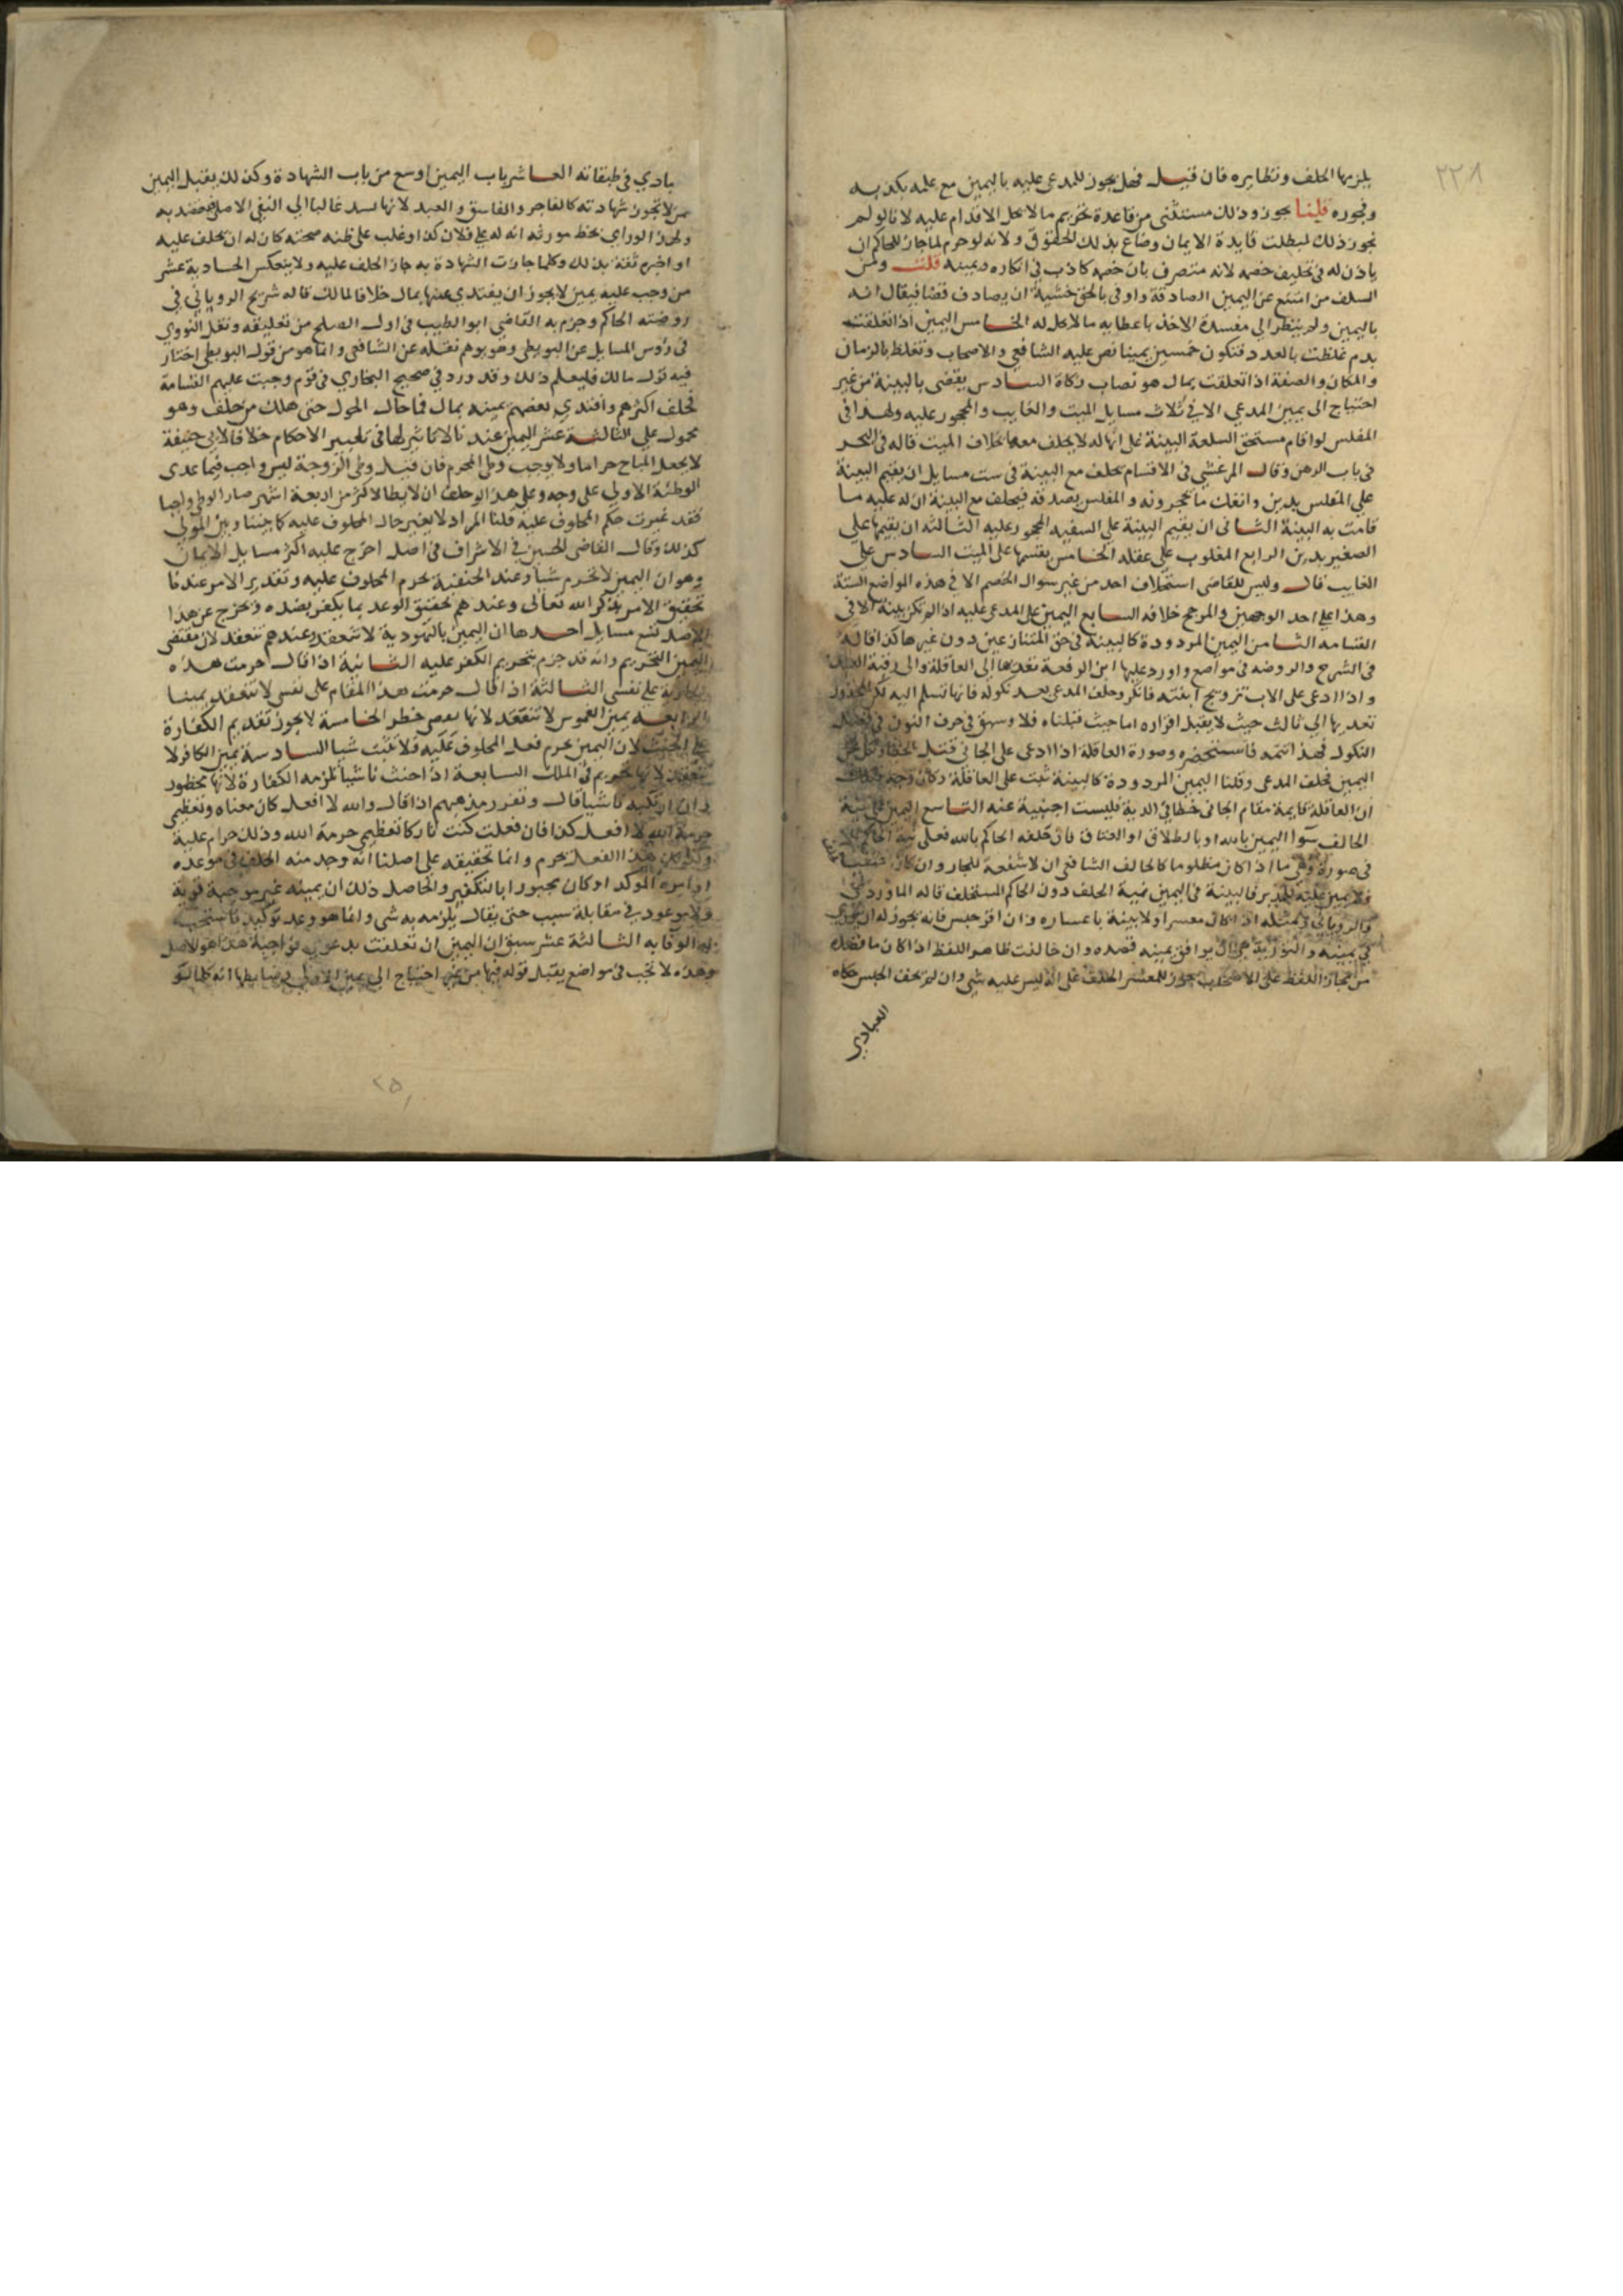 ٢٢٨
يلزمها الحلف ونظايره فان قيل فهل يجوز للمدعي عليه باليمين مع علمه بكذبه
وفجوره قلنا يجوز وذلك مستثنى من قاعدة تحريم مالا يحل الاقدام عليه لانا لو لم
نجوز ذلك لبطلت فايدة الايمان وضاع بذلك الحقوق ولانه لو حرم لما جاز للحاكم ان
ياذن له في تحليف خصمه لانه متصرف بان خصمه كاذب في انكاره ويمينه قلت ومن
السلف من امتنع عن اليمين الصادقة واوفى بالحق خشية ان يصادف قضا فيقال انه
باليمين ولم ينظر الى مفسدة الاخذ باعطايه مالا يحل له الخامس اليمين اذا تعلقت
بدم غلظت بالعدد فتكون خمسين يمينا نص عليه الشافعي والاصحاب وتغلظ بالزمان
والمكان والصفة اذا تعلقت بمال هو نصاب زكاة السادس يقضى بالبينة من غير
احتياج الى يمين المدعي الا في ثلاث مسايل الميت والغايب والمحجور عليه ولهذا في
المفلس لو اقام مستحق السلعة البينة على انها له لا يحلف معها بخلاف الميت قاله في البحر
في باب الرهن وقال المرعشي في الاقسام يحلف مع البينة في ست مسايل ان يقيم البينة
على المفلس بدين وانفك ما يحجر ونه والمفلس يصدقه فيحلف مع البينة ان له عليه ما
قامت به البينة الثاني ان يقيم البينة على السفيه المحجور عليه الثالثه ان يقيمها على
الصغير بدين الرابع المغلوب على عقله الخامس يقيمها على الميت السادس على
الغايب قال وليس للقاضي استحلاف احد من غير سوال الخصم الا في هذه المواضع الستة
وهذا على احد الوجهين والمرجح خلافه السابع اليمين على المدعى عليه اذا لم تكن بينة الا في
القسامه الثامن اليمين المردودة كالبينة في حق المتنازعين دون غيرها كذا قاله
في الشرح والروضه في مواضع واورد عليها ابن الرفعة تعديها الى العاقلة والى رقبة العبد
واذا ادعى على الاب تزويج ابنته فانكر وحلف المدعي بعد نكوله فانها تسلم اليه
تعديها الى ثالث حيث لا يقبل اقراره اما حيث قبلناه فلا وسبق في حرف النون في
النكول فهذا تتمه فاستحضره وصورة العاقلة اذا ادعى على الجاني قتل الخطا ونكل عن
اليمين فحلف المدعي وقلنا اليمين المردودة كالبينة ثبت على العاقلة وكان وجه ذلك
ان العاقلة قايمة مقام الجاني خطا في الدية فليست اجنبية عنه التاسع اليمين على نية
الحالف سوا اليمين بالله او بالطلاق او العتاق فان حلفه الحاكم بالله فعلى نية الحاكم الا
في صورة وهي ما اذا كان مظلوما كالحالف الشافعي ان لا شفعة للجار وان كان
في اليمين نية الحلف دون الحاكم المستحلف قاله الماوردي
والروياني ومثله اذا كان معسرا ولا بينة باعساره وان اقر حبس فانه يجوز له ان يوري
في يمينه والتورية هي ان يوافق يمينه قصده وان خالفت ظاهر اللفظ اذا كان ما قصده
من مجاز اللفظ على الاصح يجوز للمعسر الحلف على انه ليس عليه شي وان لم يخف الحبس حكاه
العبادي
بادي في طبقاته العاشر باب اليمين اوسع من باب الشهادة وكذلك يقبل اليمين
ممن لا تجوز شهادته كالفاجر والفاسق والعبد لانها تسند غالبا الى النفي الاصلي
ولهذا لو راى بخط مورثه انه له على فلان كذا وغلب على ظنه صحته كان له ان يحلف عليه
او اخبره ثقة بذلك وكلما جازت الشهادة به جاز الحلف عليه ولا ينعكس الحادية عشر
من وجب عليه يمين لا يجوز ان يفتدي عنها بمال خلافا لمالك قاله شريح الروياني في
روضته الحاكم وجزم به القاضي ابو الطيب في اول الصلح من تعليقه ونقل النووي
في رؤس المسايل عن البويطي وهو يوهم نقله عن الشافعي وانما هو من قول البويطي اختار
فيه قول مالك فليعلم ذلك وقد ورد في صحيح البخاري في قوم وجبت عليهم القسامة
فحلف اكثرهم وافتدى بعضهم يمينه بمال فما حال الحول حتى هلك من حلف وهو
محمول على الثالثة عشر اليمين عندنا لا تاثير لها في تغيير الاحكام خلافا لابي حنيفة
لا يجعل المباح حراما ولا يوجب وطي المحرم فان قيل وطى الزوجة ليس واجب فيما عدى
الوطئة الاولى على وجه وعلى هذا لو حلف ان لا يطا لاكثر من اربعة اشهر صار الوطي واجبا
فقد غيرت حكم المحلوف عليه قلنا المراد لا يغير حال المحلوف عليه كما بيننا وبين المولى
كذلك وقال القاضي الحسين في الاشراف في اصل اخرج عليه اكثر مسايل الايمان
وهو ان اليمين لا تحرم شيا وعند الحنفية تحرم المحلوف عليه وتقدير الامر عندنا
تحقيق الامر بذكر الله تعالى وعندهم تحقيق الوعد بما يكفر بضده وتخرج عن هذا
الاصل تسع مسايل احدها ان اليمين باليهودية لا تنعقد وعندهم تنعقد لان مقتضى
اليمين التحريم وانه قد جزم بتحريم الكفر عليه الثانية اذا قال حرمت هذه
الجارية على نفسي الثالثة اذا قال حرمت هذا الطعام على نفسي لا تنعقد يمينا
الرابعه يمين الغموس لا تنعقد لانها خطر الخامسة لا يجوز تقديم الكفارة
على الحنث لان اليمين يحرم فعل المحلوف عليه فلا تثبت شيا السادسة يمين الكافر لا
تنعقد لانها تحريم في الملك السابعة اذا حنث ناسيا تلزمه الكفارة لانها محظور
وان ارتكبه ناسيا قال وتقرر مذهبهم اذا قال والله لا افعل كان معناه وتعظيمي
حرمة الله لا افعل كذا فان فعلت كنت تاركا تعظيم حرمة الله وذلك حرام عليه
هذا الفعل يحرم وانما تحقيقه على اصلنا انه وجد منه الحلف في موعده
المؤكد او كان مجبورا بالتكفير والحاصل ذلك ان يمينه غير موجبة قربة
في مقابلة سبب حتى يقال يلزمه به شي وانما هو وعد توكيد فاستحب
له الوفا به الثالثة عشر سبق ان اليمين ان تعلقت بدعوى فواجبة هذا هو الاصل
وهذه لا تجب في مواضع يقبل قوله فيها من غير احتياج الى يمين الاولى وضابطها انه كلما لو
٢٥